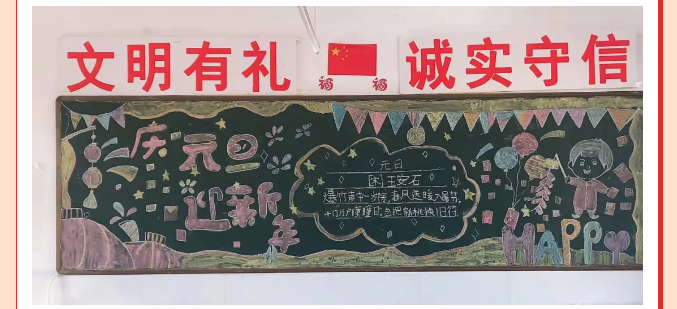 文明有礼
诚实守信
福 福
庆元旦
迎新年
元日
[宋]王安石
爆竹声中一岁除,春风送暖入屠苏。
千门万户曈曈日,总把新桃换旧符
HAPPY